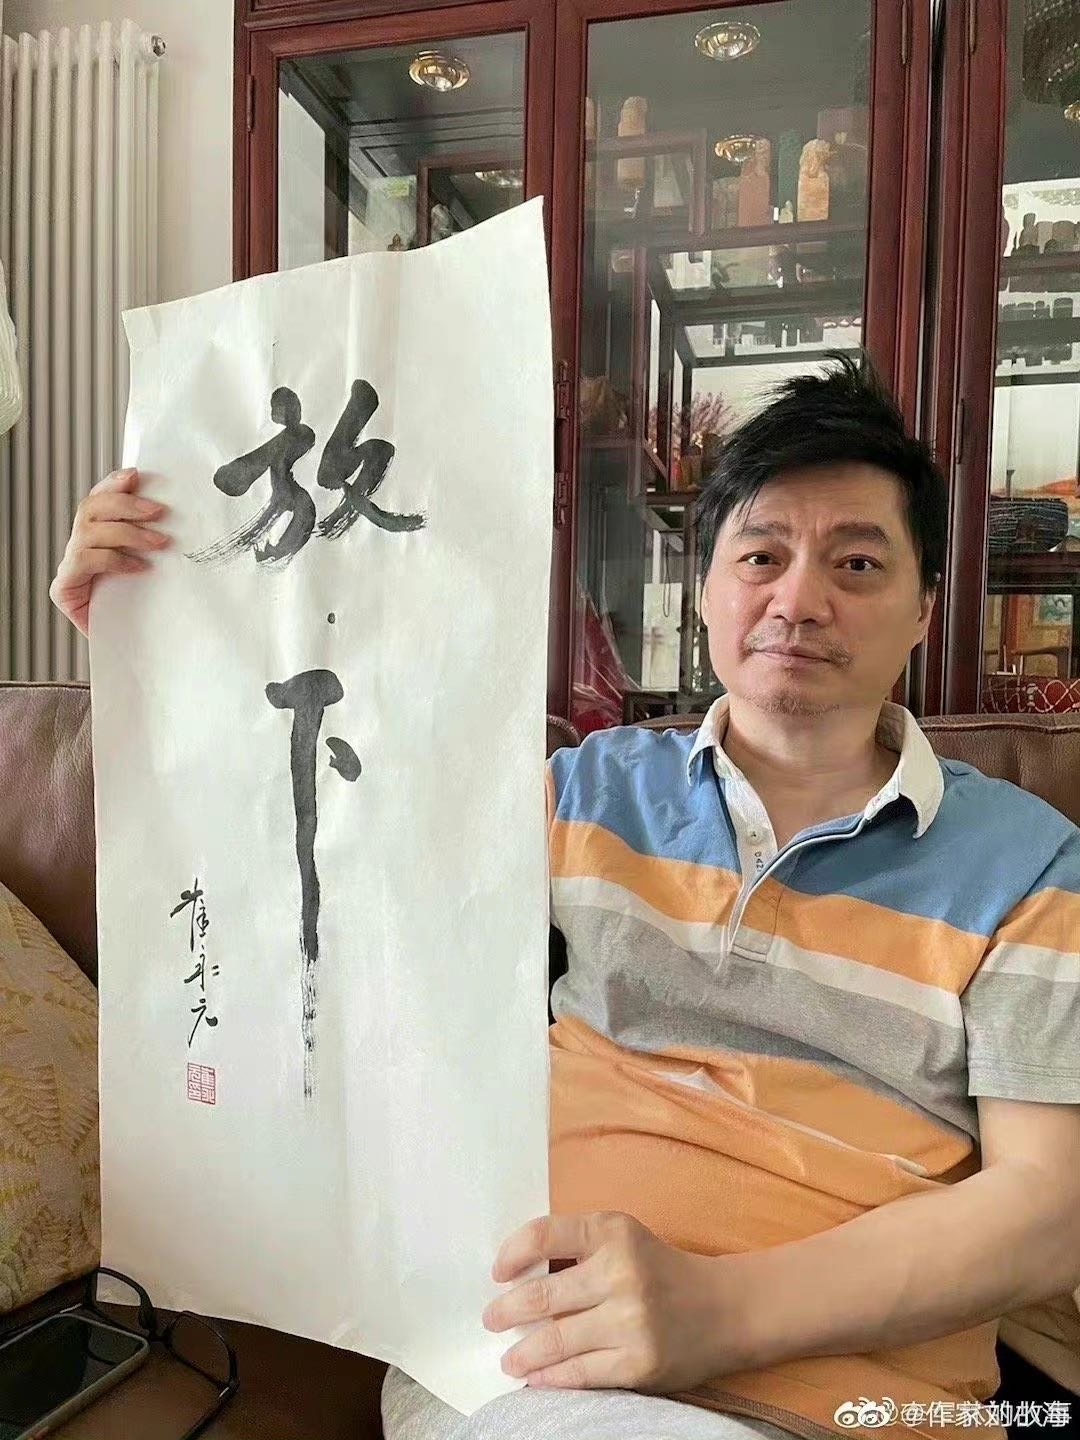 放下
崔永元
@作家刘故海